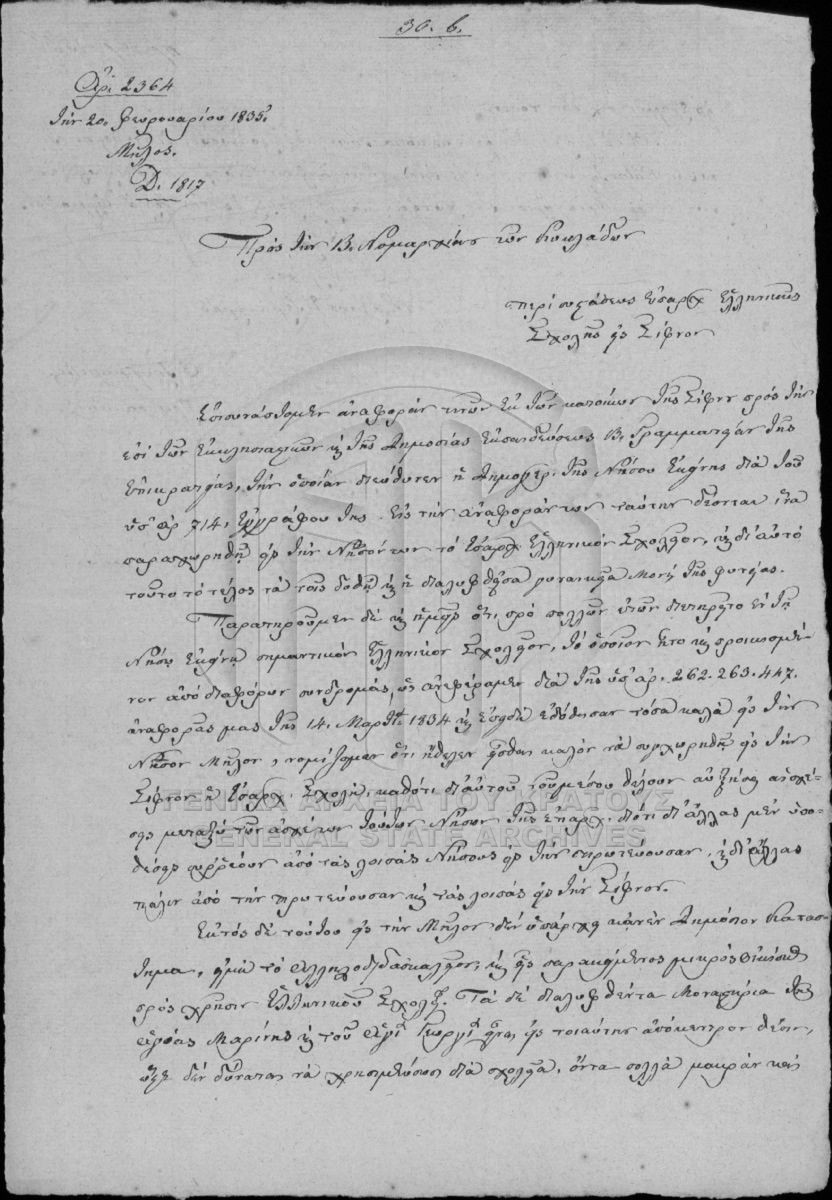 30. 6.
Αρ. 2364
τὴν 20. Φευρουαρίου 1835.
Μῆλος.
D. 1817
Πρὸς τὴν Β. Νομαρχίαν τῶν Κυκλάδων
περὶ συστάσεως Ἐπαρχ Ἑλληνικῆς
Σχολῆς εἰς Σίφνον
Ἐπισυνάπτομεν ἀναφορὰν τινῶν ἐκ τῶν κατοίκων τῆς Σίφνου πρὸς τὴν
ἐπὶ τῶν Ἐκκλησιαστικῶν καὶ τῆς Δημοσίας Ἐκπαιδεύσεως Β. Γραμματείαν τῆς
Ἐπικρατείας, τὴν ὁποίαν διεύθυνεν ἡ Δημογερ. τῆς Νήσου ἐκείνης διὰ τοῦ
ὑπ' ἀρ 714. ἐγγράφου της. Εἰς τὴν ἀναφοράν των ταύτην δέονται ἵνα
παραχωρηθῇ εἰς τὴν Νῆσόν των τὸ Ἐπαρχ Ἑλληνικὸν Σχολεῖον, καὶ δι' αὐτὸ
τοῦτο τὸ τέλος νὰ τοῖς δοθῇ καὶ ἡ διαλυθεῖσα γυναικεία Μονὴ τῆς φυτείας.
Παρατηροῦμεν δὲ καὶ ἡμεῖς ὅτι, πρὸ πολλῶν ἐτῶν διετηρεῖτο ἐν τῇ
Νήσῳ ἐκείνῃ σημαντικὸν Ἑλληνικὸν Σχολεῖον, τὸ ὁποῖον ἦτο καὶ προικισμέ-
νον ἀπὸ διαφόρων συνδρομάς, ὡς ἀνεφέραμεν διὰ τῆς ὑπ' ἀρ. 262. 263. 447.
ἀναφορᾶς μας τῆς 14. Μαρτίου 1834 καὶ ἐπειδὴ ἐδόθησαν τόσα καλὰ εἰς τὴν
Νῆσον Μῆλον, νομίζομεν ὅτι ἤθελεν εἶσθαι καλὸν νὰ συγχωρηθῇ εἰς τὴν
Σίφνον ἡ Ἐπαρχ. Σχολή, καθότι δι' αὐτοῦ τοῦ μέσου θέλουν αὐξήσει αἱ σχέ-
σεις μεταξὺ τῶν τούτων Νήσων τῆς ἐπαρχ. διότι δι' ἄλλας μὲν ὑπο-
θέσεις συρρέουν ἀπὸ τὰς λοιπὰς Νήσους εἰς τὴν πρωτεύουσαν, καὶ δι' ἄλλας
πάλιν ἀπὸ τὴν πρωτεύουσαν καὶ τὰς λοιπὰς εἰς τὴν Σίφνον.
Ἐκτὸς δὲ τούτου εἰς τὴν Μῆλον δὲν ὑπάρχει κανὲν Δημόσιον κατάσ-
τημα, εἰμὴ τὸ Ἀλληλοδιδασκαλεῖον, καὶ εἷς παρακείμενος μικρὸς οἰκίσκος
πρὸς χρῆσιν Ἑλληνικοῦ Σχολείου. Τὰ δὲ διαλυθέντα Μοναστήρια τῆς
Ἁγίας Μαρίνης καὶ τοῦ Ἁγίου Γεωργίου εἶναι εἰς τοιαύτην ἀπόκεντρον θέσιν,
ὥστε δὲν δύναται νὰ χρησιμεύσωσι διὰ σχολεῖα, ὄντα πολλὰ μακρὰν καὶ
ΓΕΝΙΚΑ ΑΡΧΕΙΑ ΤΟΥ ΚΡΑΤΟΥΣ
GENERAL STATE ARCHIVES